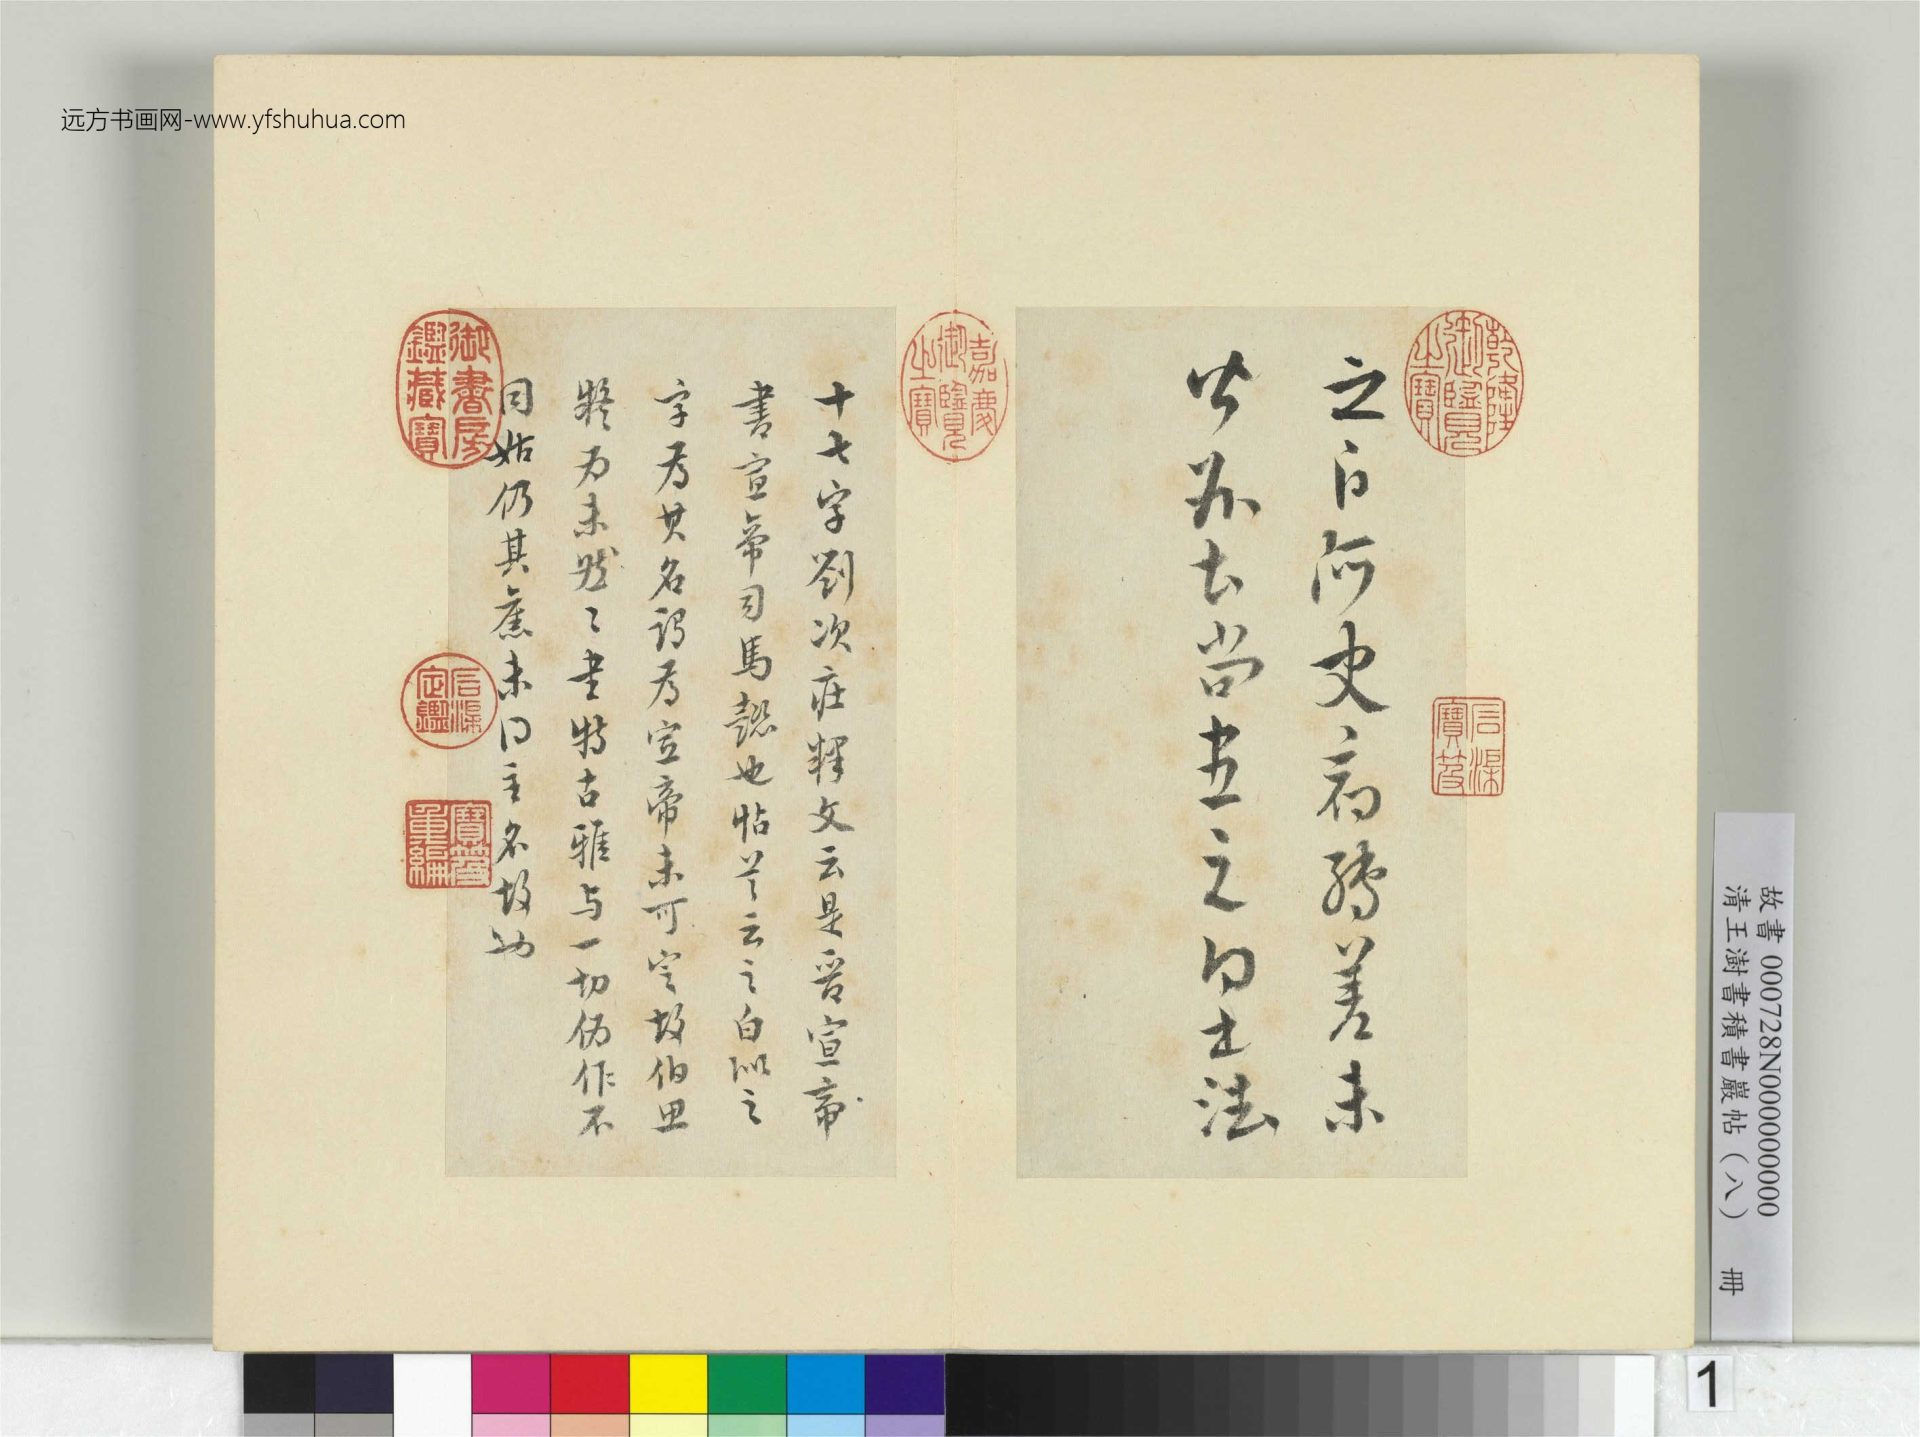 远方书画网-www.yfshuhua.com
乾隆御覽之寶
石渠寶笈
之白阿史病轉差未
去尚書之白
嘉慶御覽之寶
十七字劉次莊釋文云是晉宣帝
書宣帝司馬懿也帖首云之白以之
字為其名謂為宣帝未可定故伯思
疑為未然〻書特古雅与一切偽作不
同姑仍其舊未得主名故也
御書房鑑藏寶
石渠定鑑
寶笈重編
故書 000728N000000000
清王澍書積書巖帖(八) 冊
1